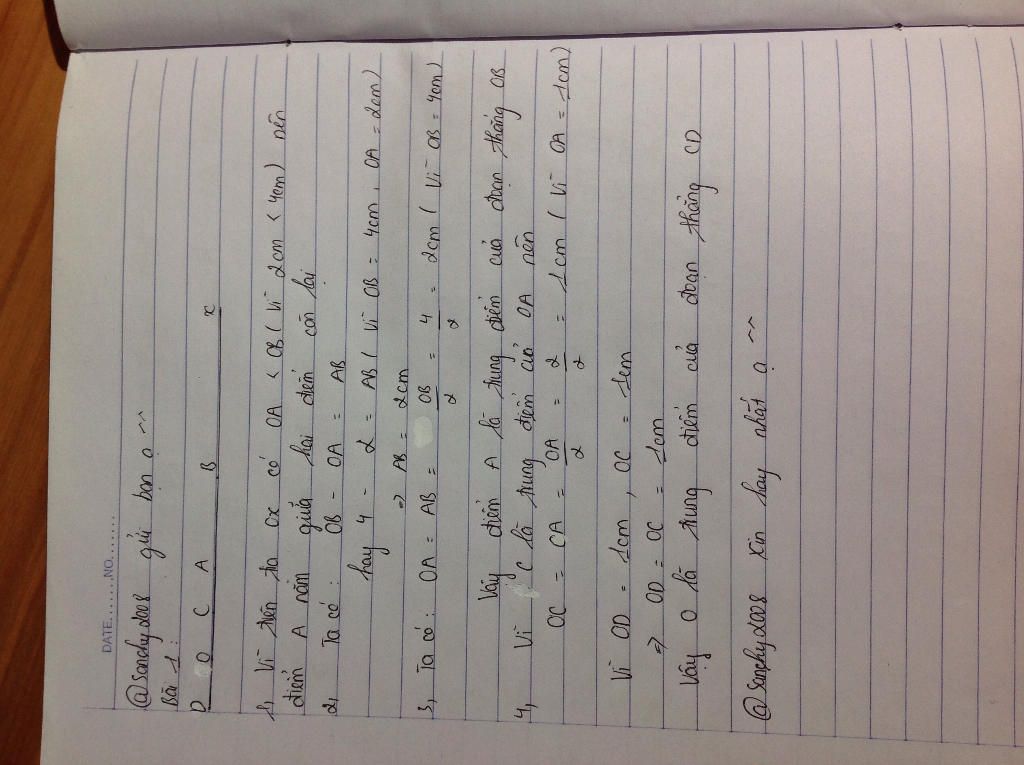 DATE........NO.......
@sonchy2008 gửi bạn ạ ^^
Bài 1:
D O C A B x
1, Vì trên tia Ox có OA < OB ( Vì 2cm < 4cm ) nên
điểm A nằm giữa hai điểm còn lại
2, Ta có: OB - OA = AB
hay 4 - 2 = AB ( Vì OB = 4cm, OA = 2cm )
=> AB = 2cm
3, Ta có: OA = AB = OB/2 = 4/2 = 2cm ( Vì OB = 4cm )
Vậy điểm A là trung điểm của đoạn thẳng OB
4, Vì C là trung điểm của OA nên
OC = CA = OA/2 = 2/2 = 1cm ( Vì OA = 1cm )
Vì OD = 1cm, OC = 1cm
=> OD = OC = 1cm
Vậy O là trung điểm của đoạn thẳng CD
@sonchy2008 xin hay nhất ạ ^^